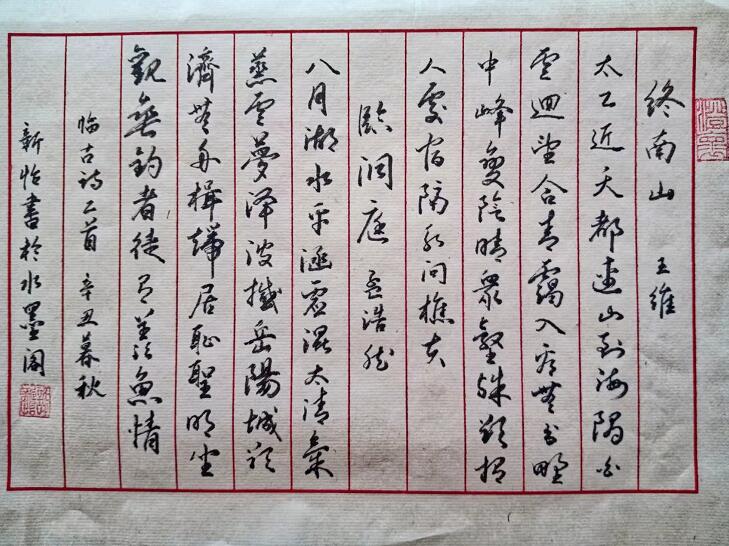 終南山 王維
太乙近天都連山到海隅白
雲迴望合青靄入看無分野
中峰變陰晴衆壑殊欲投
人處宿隔水問樵夫
臨洞庭 孟浩然
八月湖水平涵虛混太清氣
蒸雲夢澤波撼岳陽城欲
濟無舟楫端居恥聖明坐
觀垂釣者徒有羨魚情
臨古詩二首 辛丑暮秋
新怡書於水墨閣